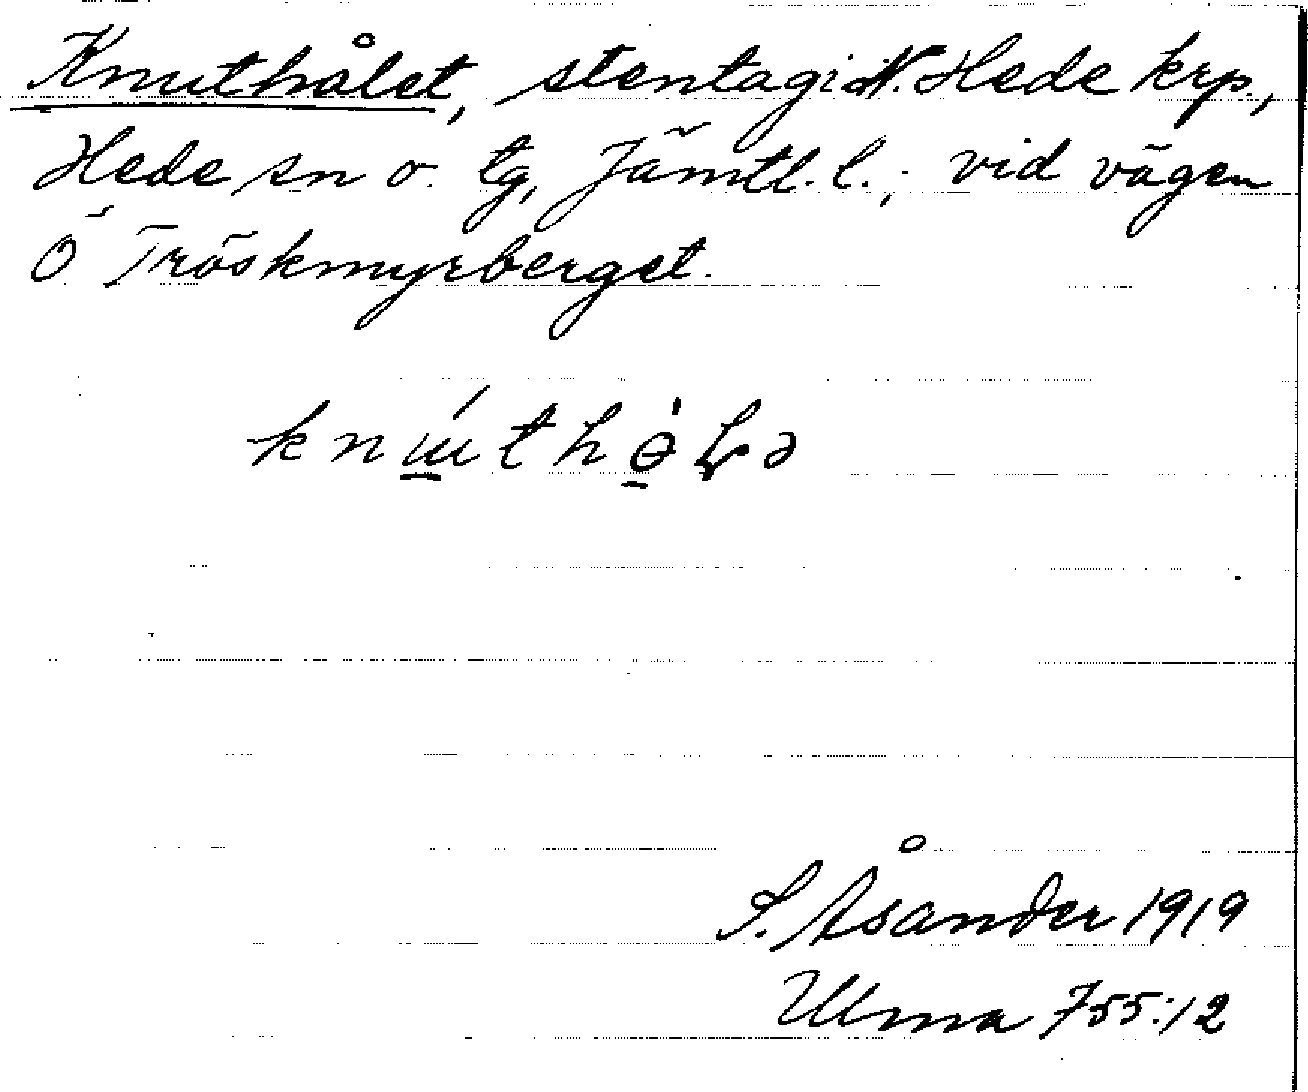 Knuthålet, stentag i N. Hede krp.,
Hede sn o. tg, Jämtl. l.; vid vägen
Ö Tröskmyrberget.
S. Åsander 1919
Ulma 755:12